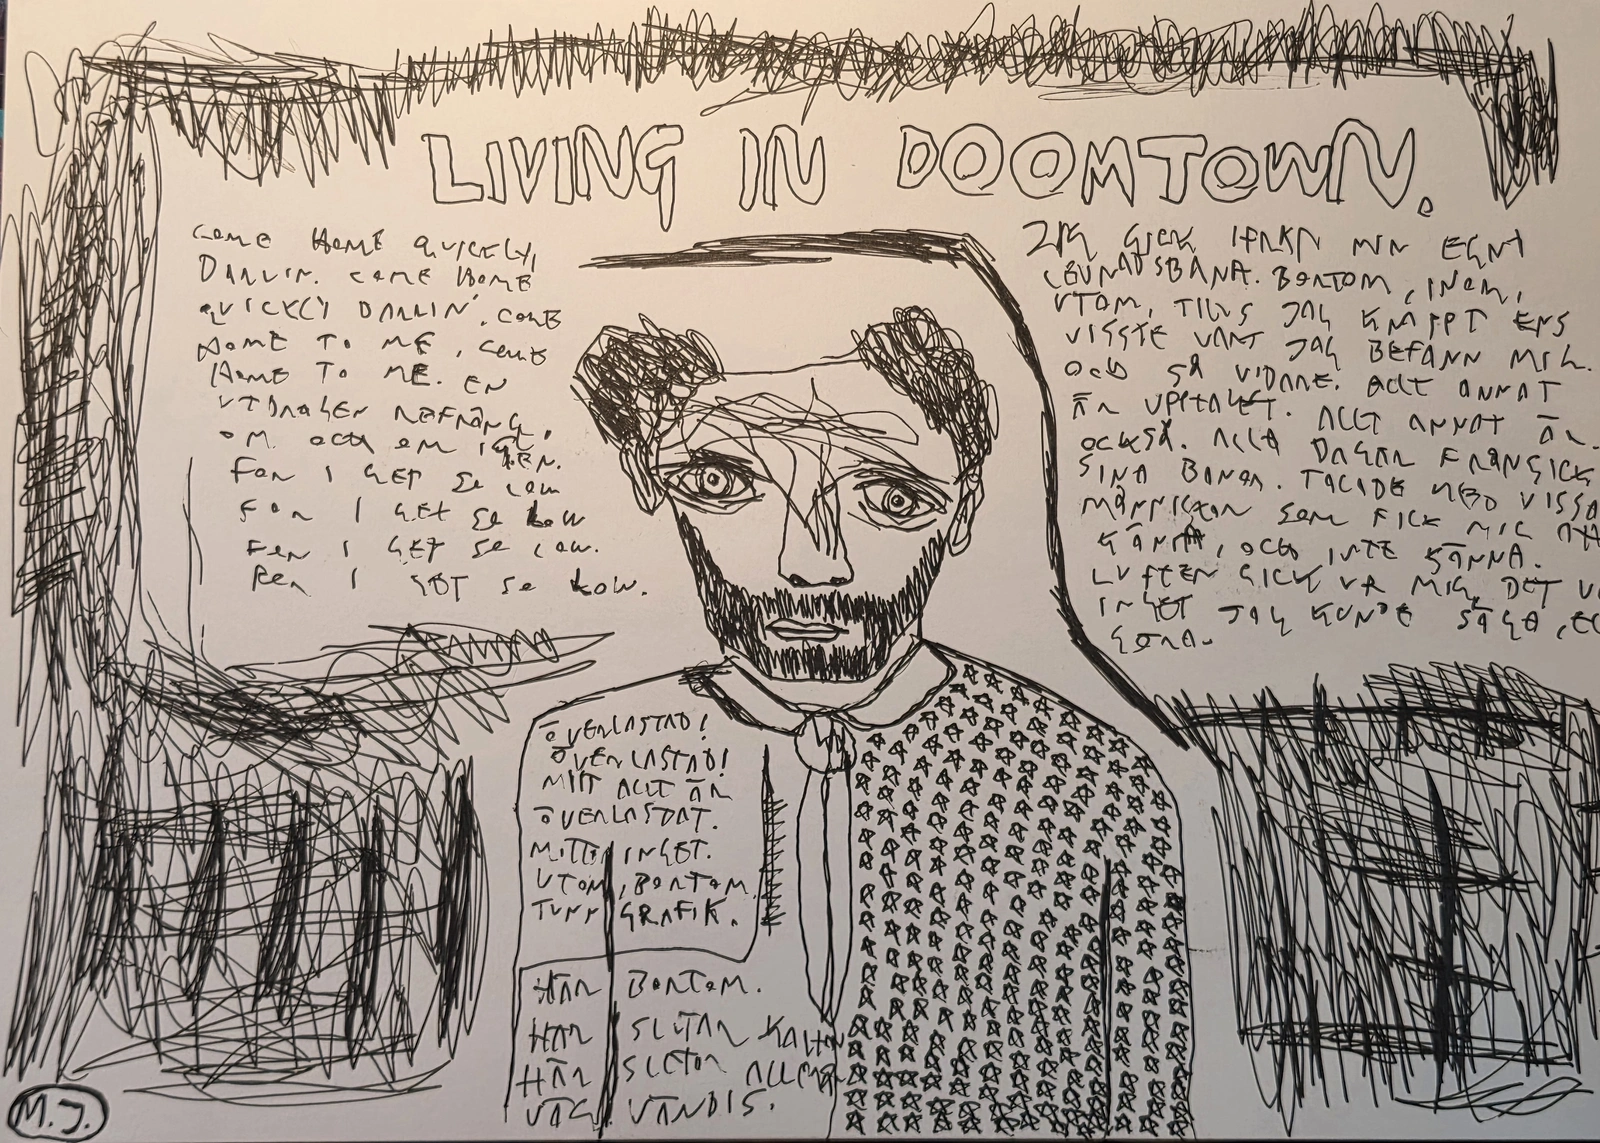 LIVING IN DOOMTOWN.
COME HOME QUICKLY,
DARLIN. COME HOME
QUICKLY DARLIN'. COME
HOME TO ME, COME
HOME TO ME. EN
UTDRAGEN REFRÄNG,
OM OCH OM IGEN.
FOR I GET SO LOW
FOR I GET SO LOW
FOR I GET SO LOW.
FOR I GET SO LOW.
JAG GICK IFRÅN MIN EGNA
LEVNADSBANA. BORTOM, INOM,
UTOM, TILLS JAG KNAPPT ENS
VISSTE VART JAG BEFANN MIG.
OCH SÅ VIDARE. ALLT ANNAT
ÄR UPPTAGET. ALLT ANNAT ÄR
OCKSÅ. ALLA DAGAR FRÅNGICK
SINA BANOR. TALADE MED VISSA
MÄNNISKOR SOM FICK MIG ATT
KÄNNA, OCH INTE KÄNNA.
LUFTEN GICK UR MIG, DET VA
INGET JAG KUNDE SÄGA, EL
GÖRA.
ÖVERLASTAD!
ÖVERLASTAD!
MITT ALLT ÄR
ÖVERLASTAT.
MITT INGET.
UTOM, BORTOM
TUNN GRAFIK.
HÄR BORTOM.
HÄR SLUTAR KARTAN
HÄR SLUTAR ALLMÄN
VÄG. VÄNDIS.
M.J.